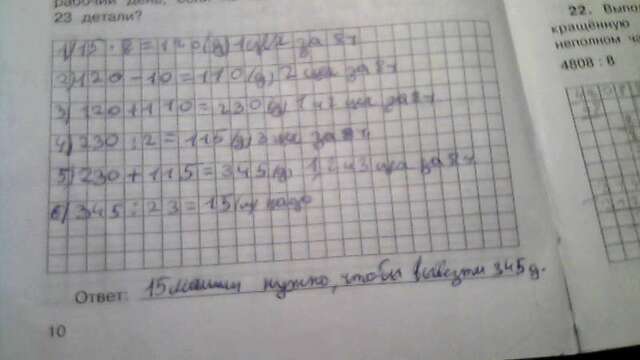 рабочий день, если
23 детали?
1) 15 · 8 = 120 (д) 1 за 8ч
2) 120 - 10 = 110 (д) 2 за 8ч
3) 120 + 110 = 230 (д) 1 и 2 за 8ч
4) 230 : 2 = 115 (д) 3 за 8ч
5) 230 + 115 = 345 (д) 1, 2 и 3 за 8ч
6) 345 : 23 = 15 (м) надо
Ответ: 15 машин нужно, чтобы вывезти 345 д.
10
22. Выпо
кращённую
неполном ча
4808 : 8